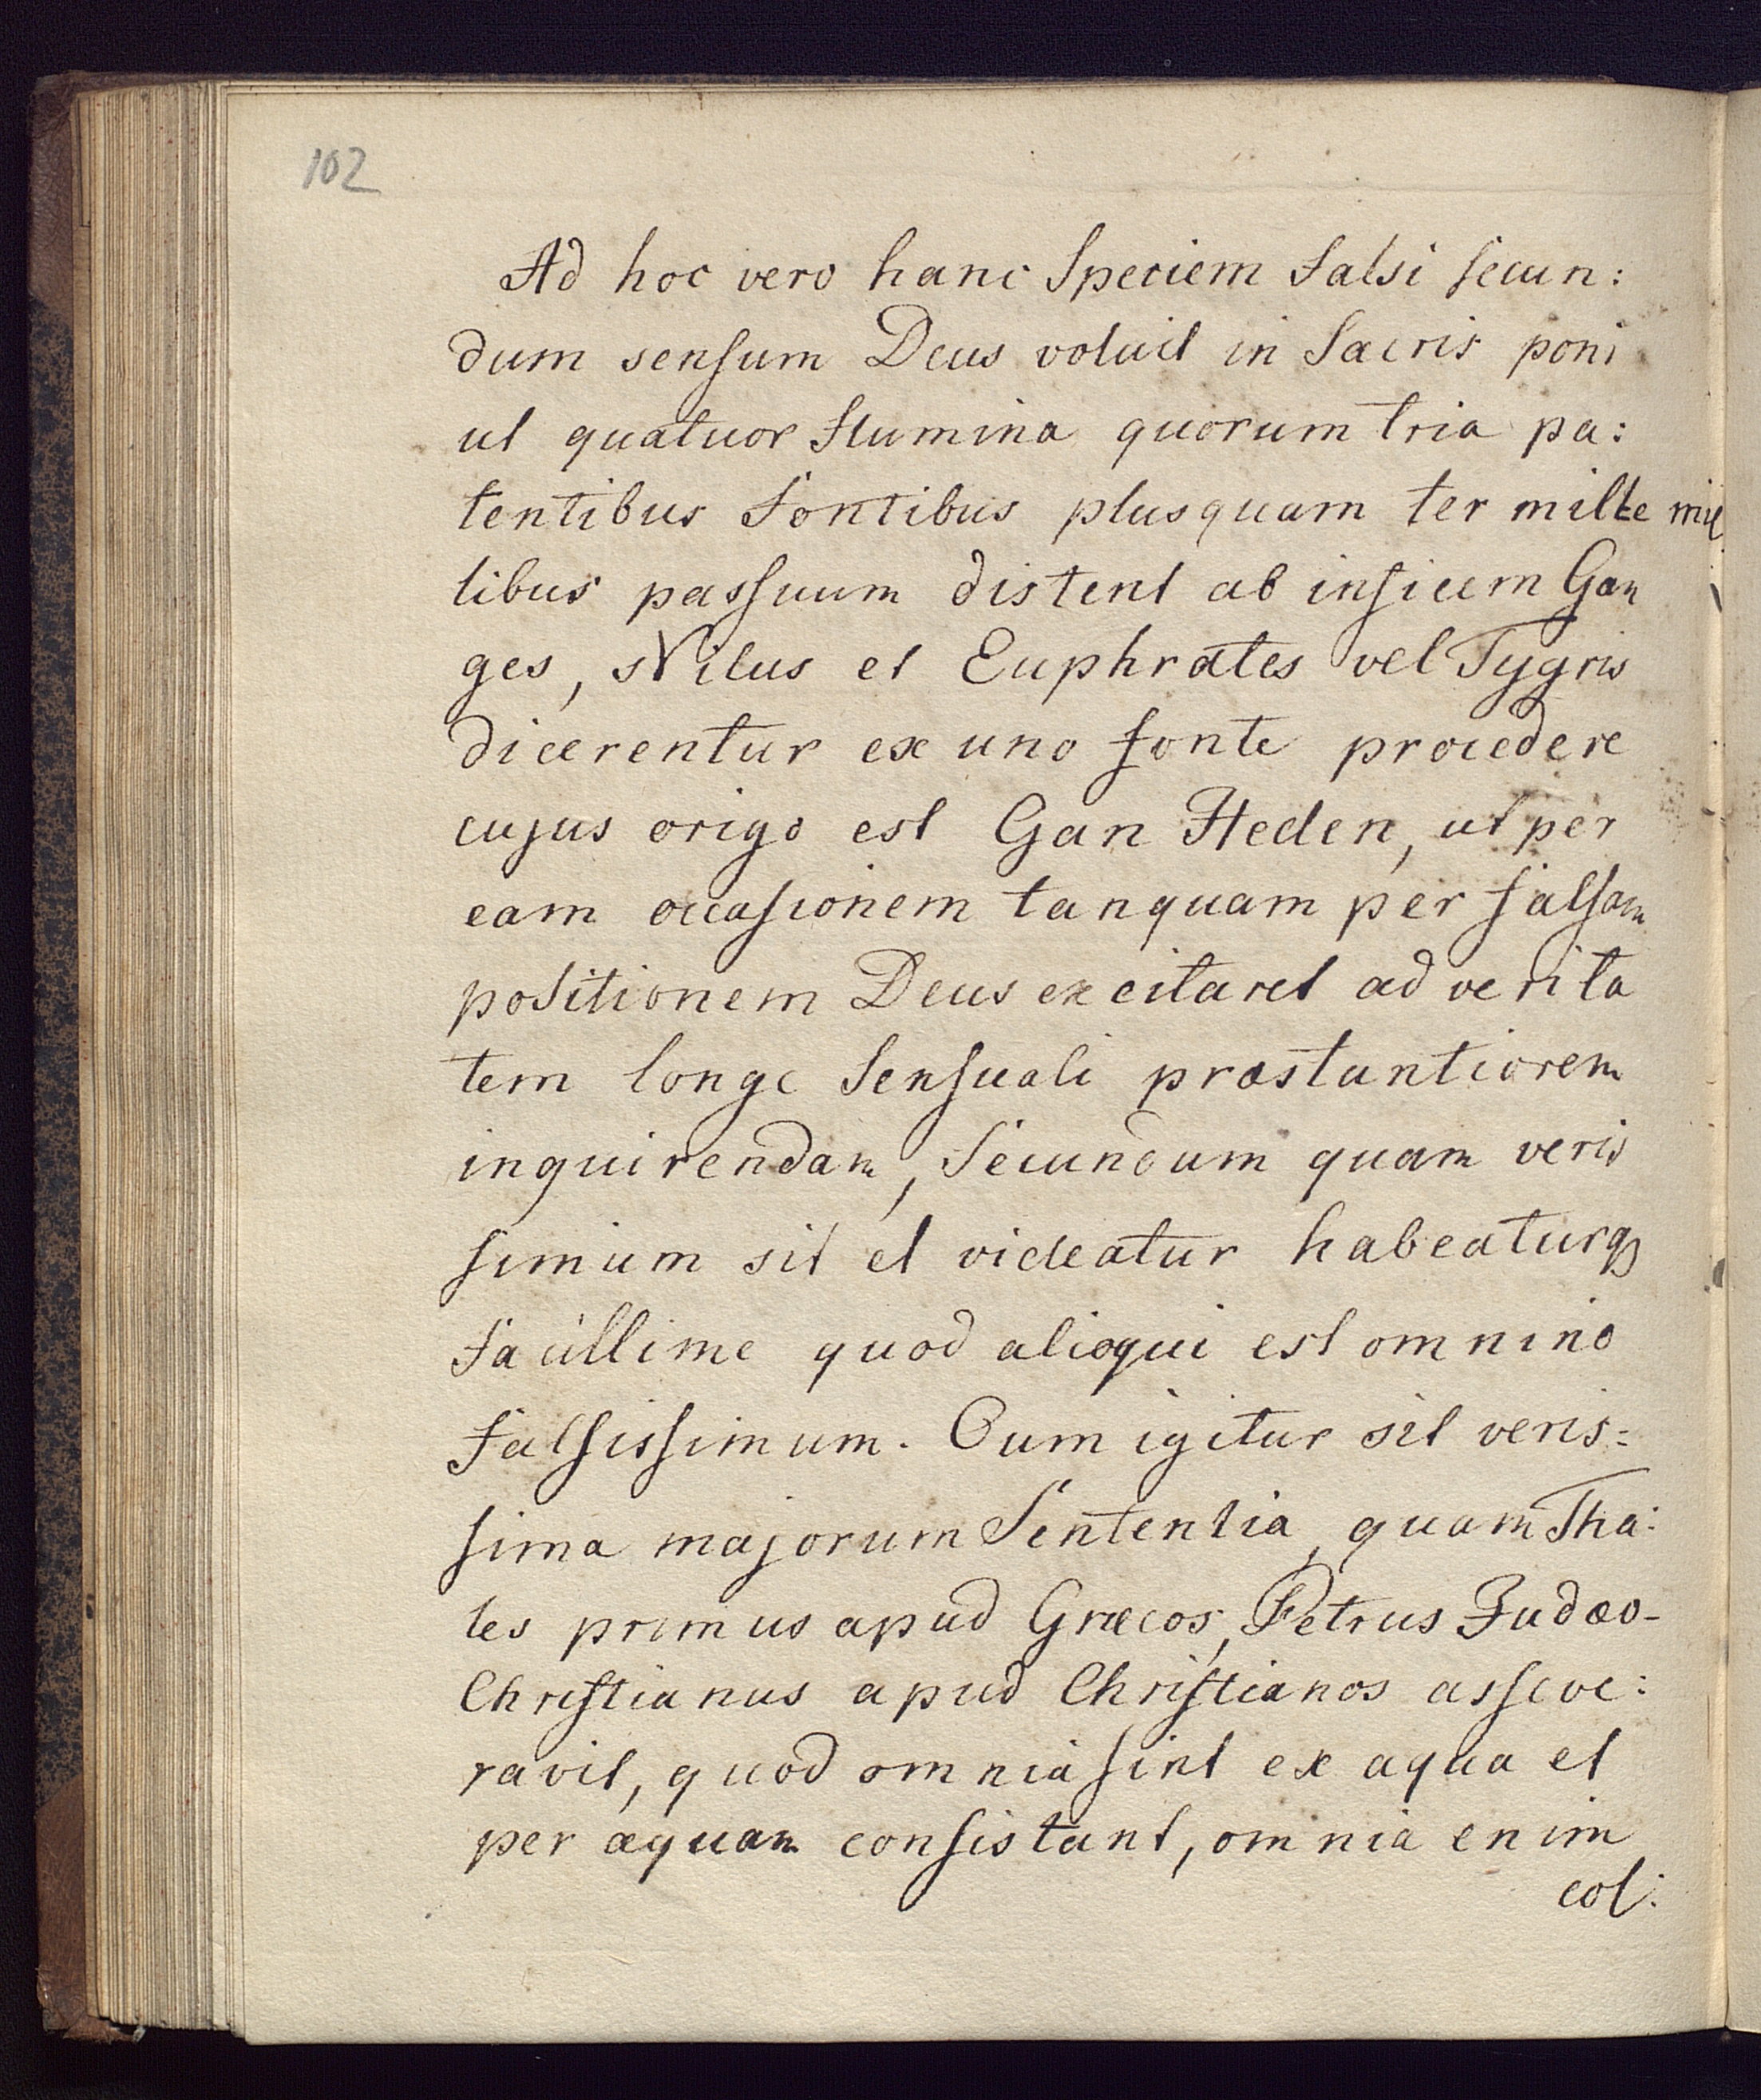 102
Ad hoc vero hanc Speciem Falsi secun:
dum sensum Deus voluit in Sacris poni
ut quatuor Flumina quorum tria pa:
tentibus Fontibus plusquam ter mille mil
libus passuum distent ab insicem Gan
ges, Nilus et Euphrates vel Tygris
dicerentur ex uno fonte procedere
cujus origo est Gan Heden, ut per
eam occasionem tanquam per falsam
positionem Deus excitaret ad verita
tem longe Sensuali præstantiorem
inquirendam, Secundum quam veris
simum sit et videatur habeaturq;
Facillime quod alioqui est omnino
Falsissimum. Cum igitur sit veris:
sima majorum Sententia, quam Tha:
les primus apud Græcos, Petrus Judæo-
Christianus apud Christianos asseve:
ravit, quod omnia sint ex aqua et
per aquam consistant, omnia enim
col: